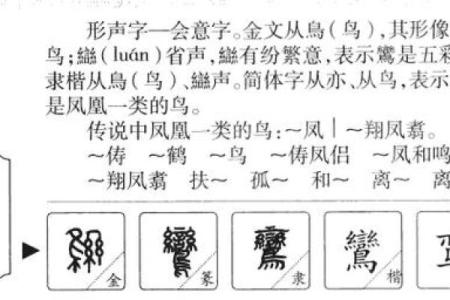 形声字—会意字。金文从鳥(鸟),其形像
鸟;䜌(luán)省声,䜌有纷繁意,表示鸞是五彩
隶楷从鳥(鸟)、䜌声。简体字从亦、从鸟,表示
是凤凰一类的鸟。
传说中凤凰一类的鸟:～凤|～翔凤翥。
～俦 ～鹤 ～鸟 ～俦凤侣 ～凤和鸣
～翔凤翥 扶～ 孤～ 和～ 离～ 离
金 鸞 篆 鸞 隶 鸞 楷